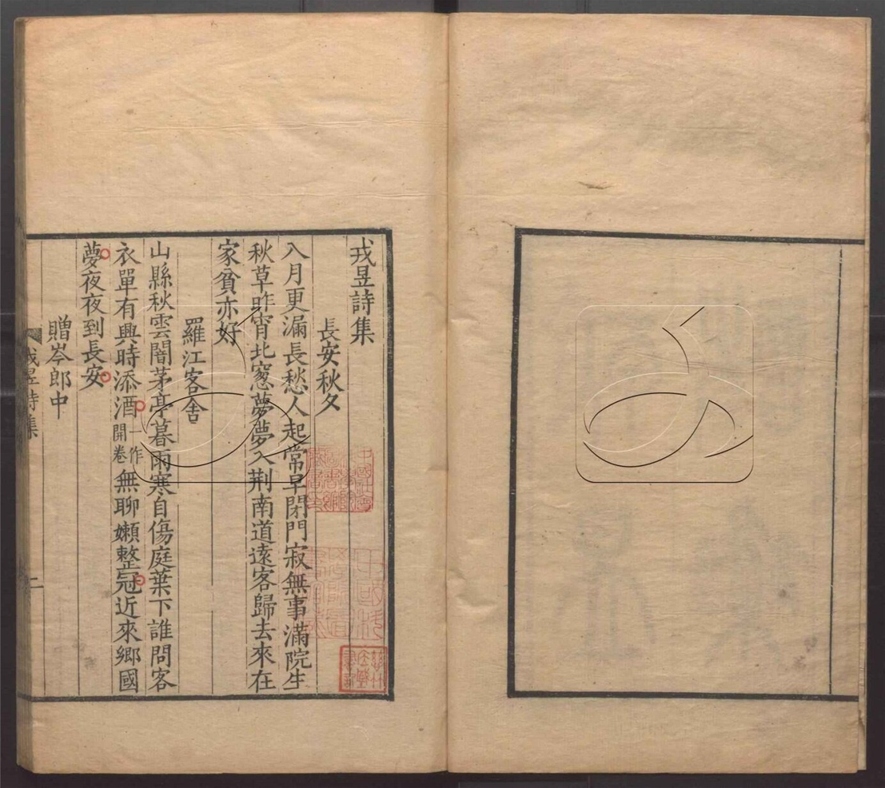 戎昱詩集
長安秋夕
八月更漏長愁人起常早閉門寂無事滿院生
秋草昨宵北窓夢夢入荆南道遠客歸去來在
家貧亦好
羅江客舍
山縣秋雲闇茅亭暮雨寒自傷庭葉下誰問客
衣單有興時添酒一作開卷無聊嬾整冠近來鄉國
夢夜夜到長安
贈岑郎中
戎昱詩集
二